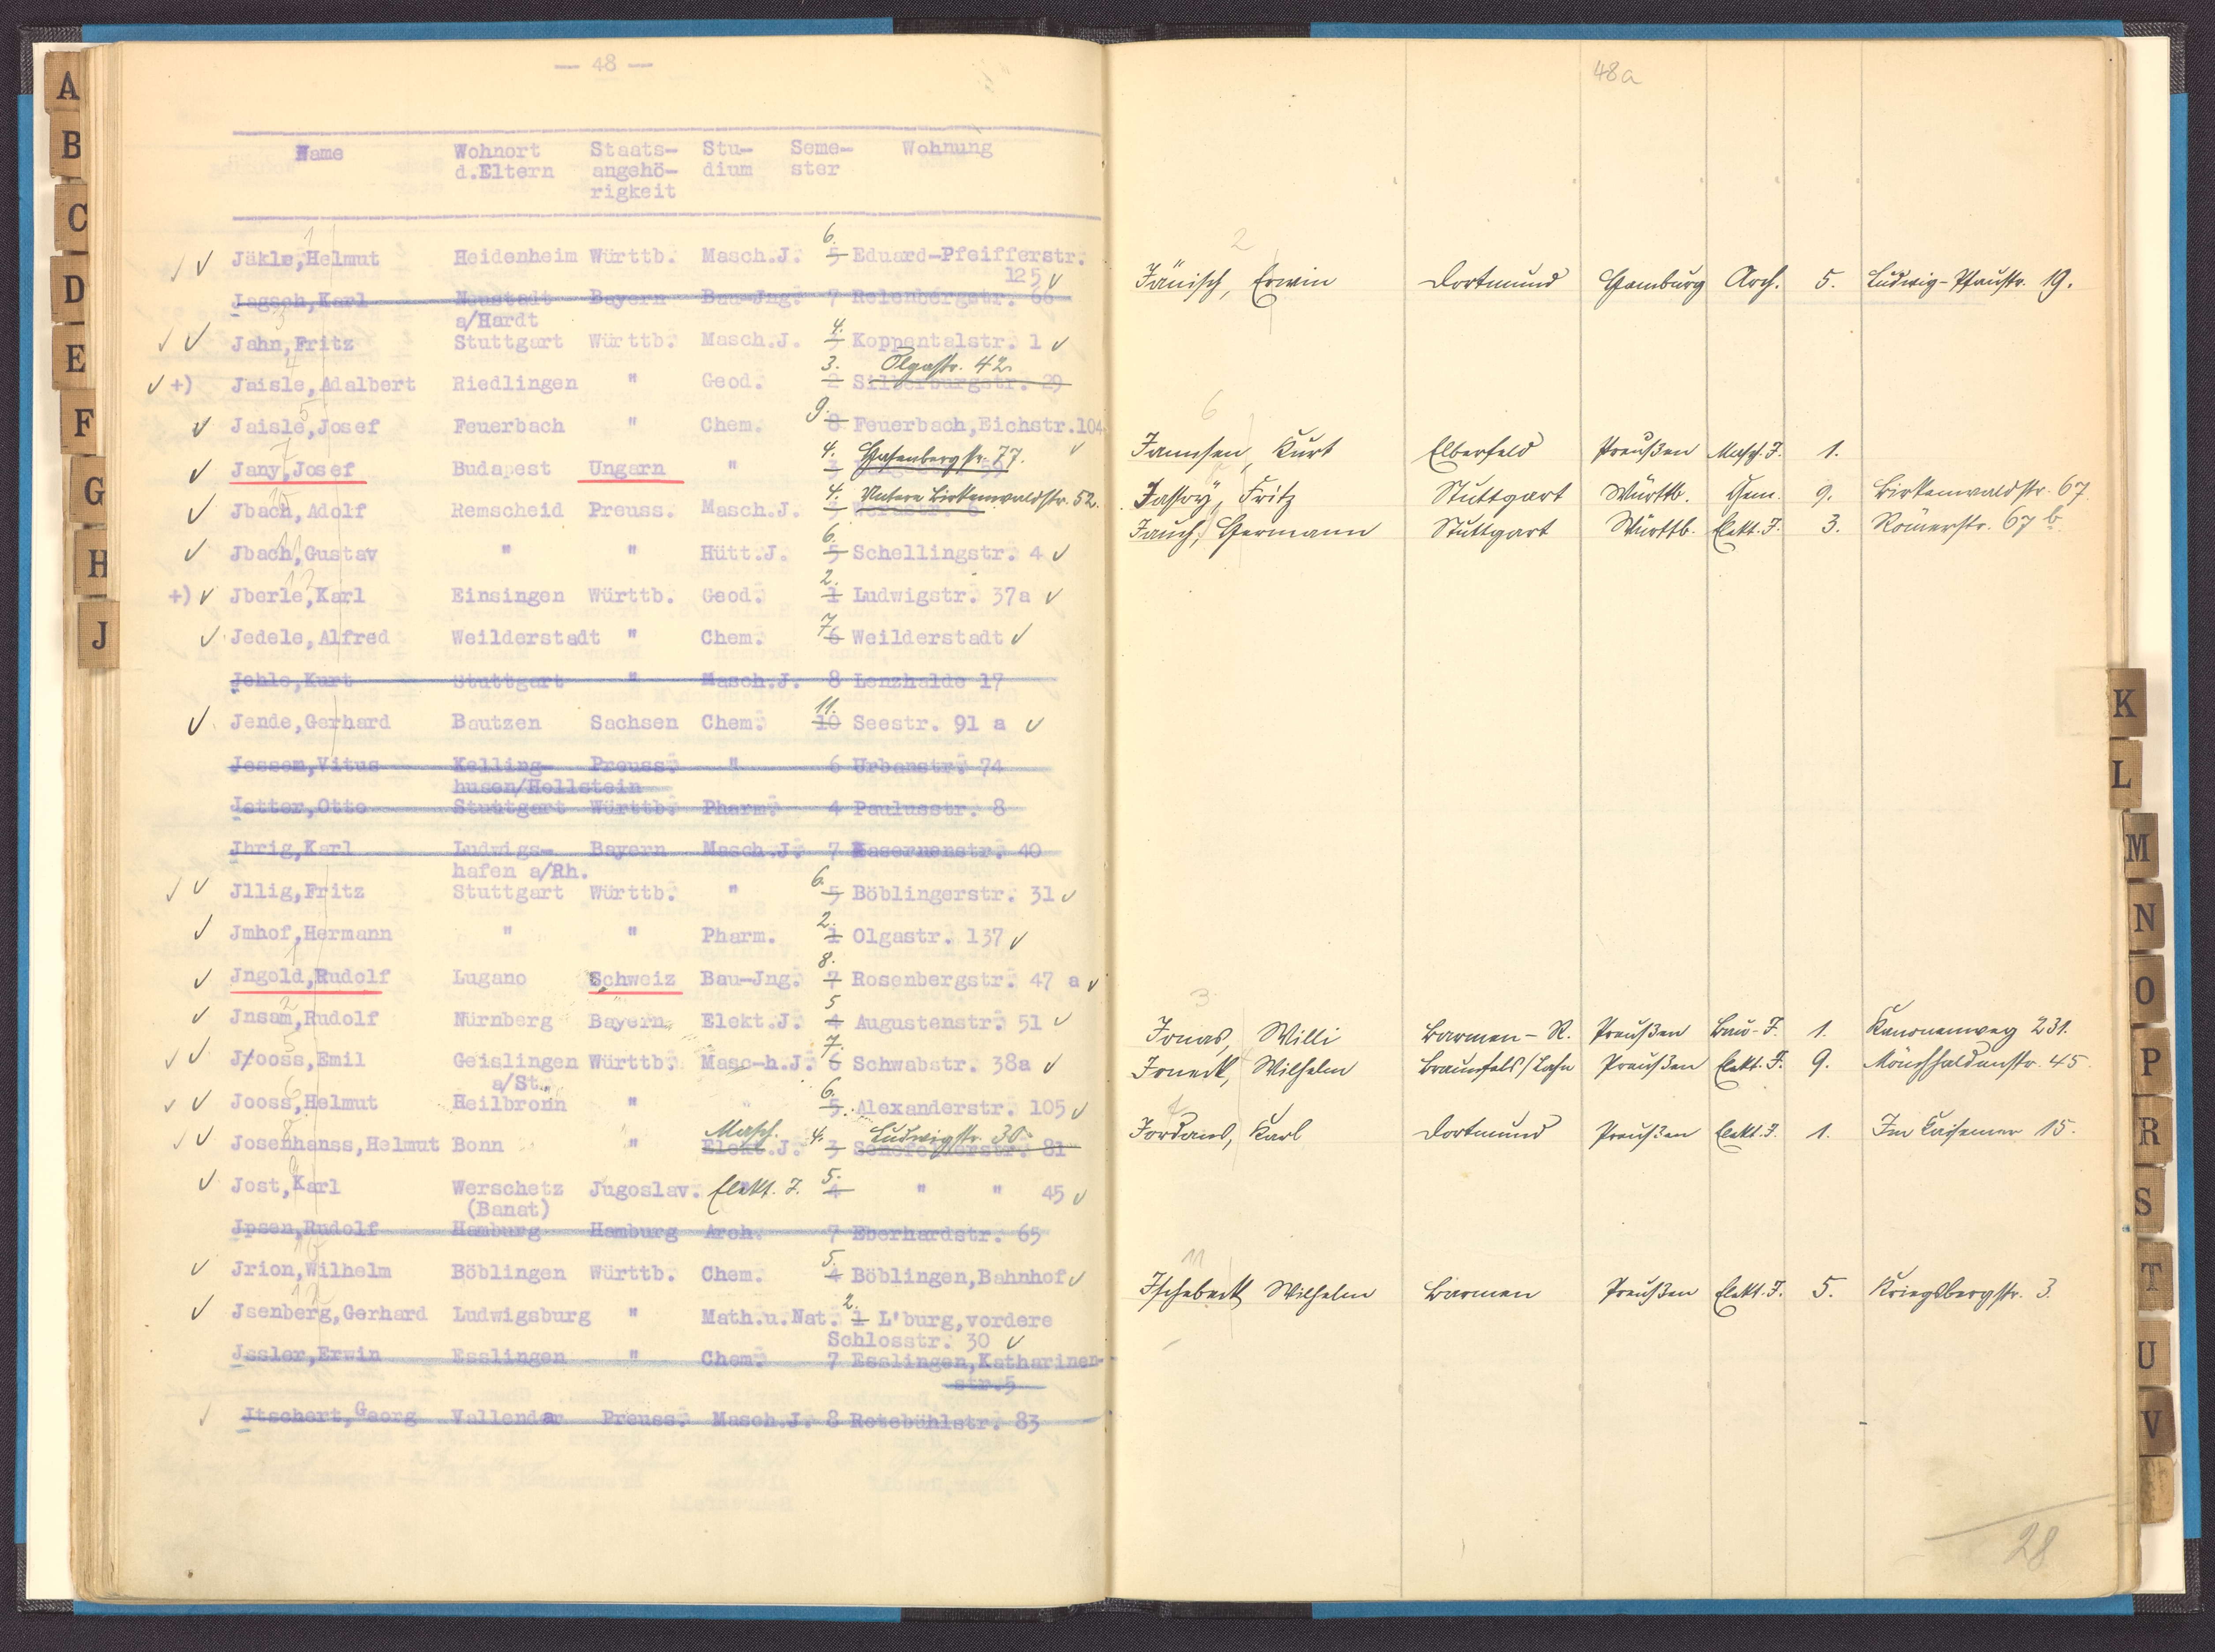 — 48 —
Name Wohnort Staats- Stu- Seme- Wohnung
d.Eltern angehö- dium ster
rigkeit
Jäkle,Helmut Heidenheim Württb. Masch.J. 6. 5 Eduard-Pfeifferstr.
125
Jagsch,Karl Neustadt Bayern Bau-Jng. 7 Relenbergstr. 66
a/Hardt
Jahn,Fritz Stuttgart Württb. Masch.J. 4. 3 Koppentalstr. 1
Jaisle,Adalbert Riedlingen " Geod. 3. 2 Silberburgstr. 29 Olgastr. 42.
Jaisle,Josef Feuerbach " Chem. 9. 8 Feuerbach,Eichstr.104
Jany,Josef Budapest Ungarn " 4. 3 Hasenbergstr. 77.
Jbach,Adolf Remscheid Preuss. Masch.J. 4. 3 Untere Birkenwaldstr. 52.
Jbach,Gustav " " Hütt.J. 6. 5 Schellingstr. 4
+) Jberle,Karl Einsingen Württb. Geod. 2. 1 Ludwigstr. 37a
Jedele,Alfred Weilderstadt " Chem. 7 6 Weilderstadt
Jehle,Kurt Stuttgart " Masch.J. 8 Lenzhalde 17
Jende,Gerhard Bautzen Sachsen Chem. 11. 10 Seestr. 91 a
Jessen,Vitus Kelling- Preuss. " 6 Urbanstr. 74
husen/Hollstein
Jetter,Otto Stuttgart Württb. Pharm. 4 Paulusstr. 8
Jhrig,Karl Ludwigs- Bayern Masch.J. 7 Kasernenstr. 40
hafen a/Rh.
Jllig,Fritz Stuttgart Württb. " 6. 5 Böblingerstr. 31
Jmhof,Hermann " " Pharm. 2. 1 Olgastr. 137
Jngold,Rudolf Lugano Schweiz Bau-Jng. 8. 7 Rosenbergstr. 47 a
Jnsam,Rudolf Nürnberg Bayern Elekt.J. 5 4 Augustenstr. 51
J/ooss,Emil Geislingen Württb. Masc-h.J. 7. 6 Schwabstr. 38a
a/St.
Jooss,Helmut Heilbronn " " 6. 5. Alexanderstr. 105
Josenhanss,Helmut Bonn " Elekt.J. Masch. 4. 3 Senefelderstr. 81 Ludwigstr. 30.
Jost,Karl Werschetz Jugoslav. Elekt. J. 5. 4 " " 45
(Banat)
Jpsen,Rudolf Hamburg Hamburg Arch. 7 Eberhardstr. 65
Jrion,Wilhelm Böblingen Württb. Chem. 5. 4 Böblingen,Bahnhof
Jsenberg,Gerhard Ludwigsburg " Math.u.Nat. 2. 1 L'burg,vordere
Schlosstr. 30
Jssler,Erwin Esslingen " Chem. 7 Esslingen,Katharinen-
str.5
Jtschert,Georg Vallendar Preuss. Masch.J. 8 Rotebühlstr. 83
48a
2
Jänisch, Erwin Dortmund Hamburg Arch. 5. Ludwig-Pfaustr. 19.
6
Jannsen, Kurt Elberfeld Preußen Masch.J. 1.
Jassoy, Fritz Stuttgart Württb. Chem. 9. Birkenwaldstr. 67.
Jauch, Hermann Stuttgart Württb. Elekt.J. 3. Römerstr. 67 b.
3
Jonas, Willi Barmen-R. Preußen Bau-J. 1. Kanonenweg 231.
Joneck, Wilhelm Braunfels/Lahn Preußen Elekt.J. 9. Mönchhaldenstr. 45.
7
Jordans, Karl Dortmund Preußen Elekt.J. 1. Im Kaisemer 15.
11
Jschebeck Wilhelm Barmen Preußen Elekt.J. 5. Kriegsbergstr. 3.
28
A
B
C
D
E
F
G
H
J
K
L
M
N
O
P
R
S
T
U
V